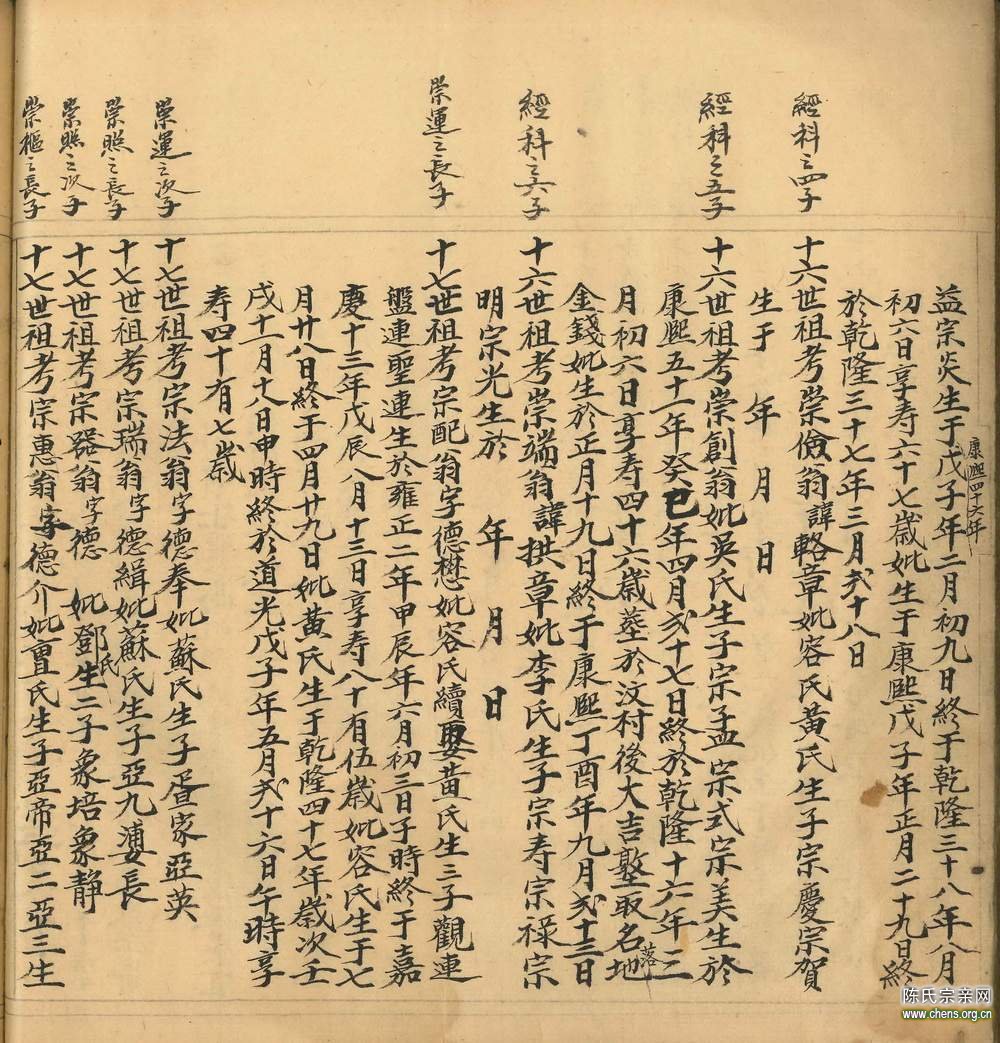 益宗炎生于戊子年二月初九日終于乾隆三十八年八月
康熙四十六年
初六日享寿六十七歲妣生于康熙戊子年正月二十九日終
於乾隆三十七年三月弍十八日
經科之四子
十六世祖考崇儉翁諱輅章妣容氏黃氏生子宗慶宗賀
生于 年 月 日
經科之五子
十六世祖考崇創翁妣吳氏生子宗孟宗式宗美生於
康熙五十一年癸巳年四月弍十七日終於乾隆十六年二
月初六日享寿四十六歲塟於汶村後大吉墪取名地
落
金錢妣生於正月十九日終于康熙丁酉年九月弍十三日
經科之六子
十六世祖考崇端翁諱拱章妣李氏生子宗寿宗禄宗
明宗光生於 年 月 日
崇運之長子
十七世祖考宗配翁字德懋妣容氏續娶黃氏生三子觀連
盤連聖連生於雍正二年甲辰年六月初三日子時終于嘉
慶十三年戊辰八月十三日享寿八十有伍歲妣容氏生于七
月廿八日終于四月廿九日妣黃氏生于乾隆四十七年歲次壬
戌十一月十八日申時終於道光戊子年五月弍十六日午時享
寿四十有七歲
崇運之次子
十七世祖考宗法翁字德奉妣蘇氏生子蛋家亞英
崇熙之長子
十七世祖考宗瑞翁字德緝妣蘇氏生子亞九
長
崇熙之次子
十七世祖考宗器翁字德 妣鄧氏生二子象培象静
崇樞之長子
十七世祖考宗惠翁字德介妣
氏生子亞帝亞二亞三生
陈氏宗亲网
www.chens.org.cn